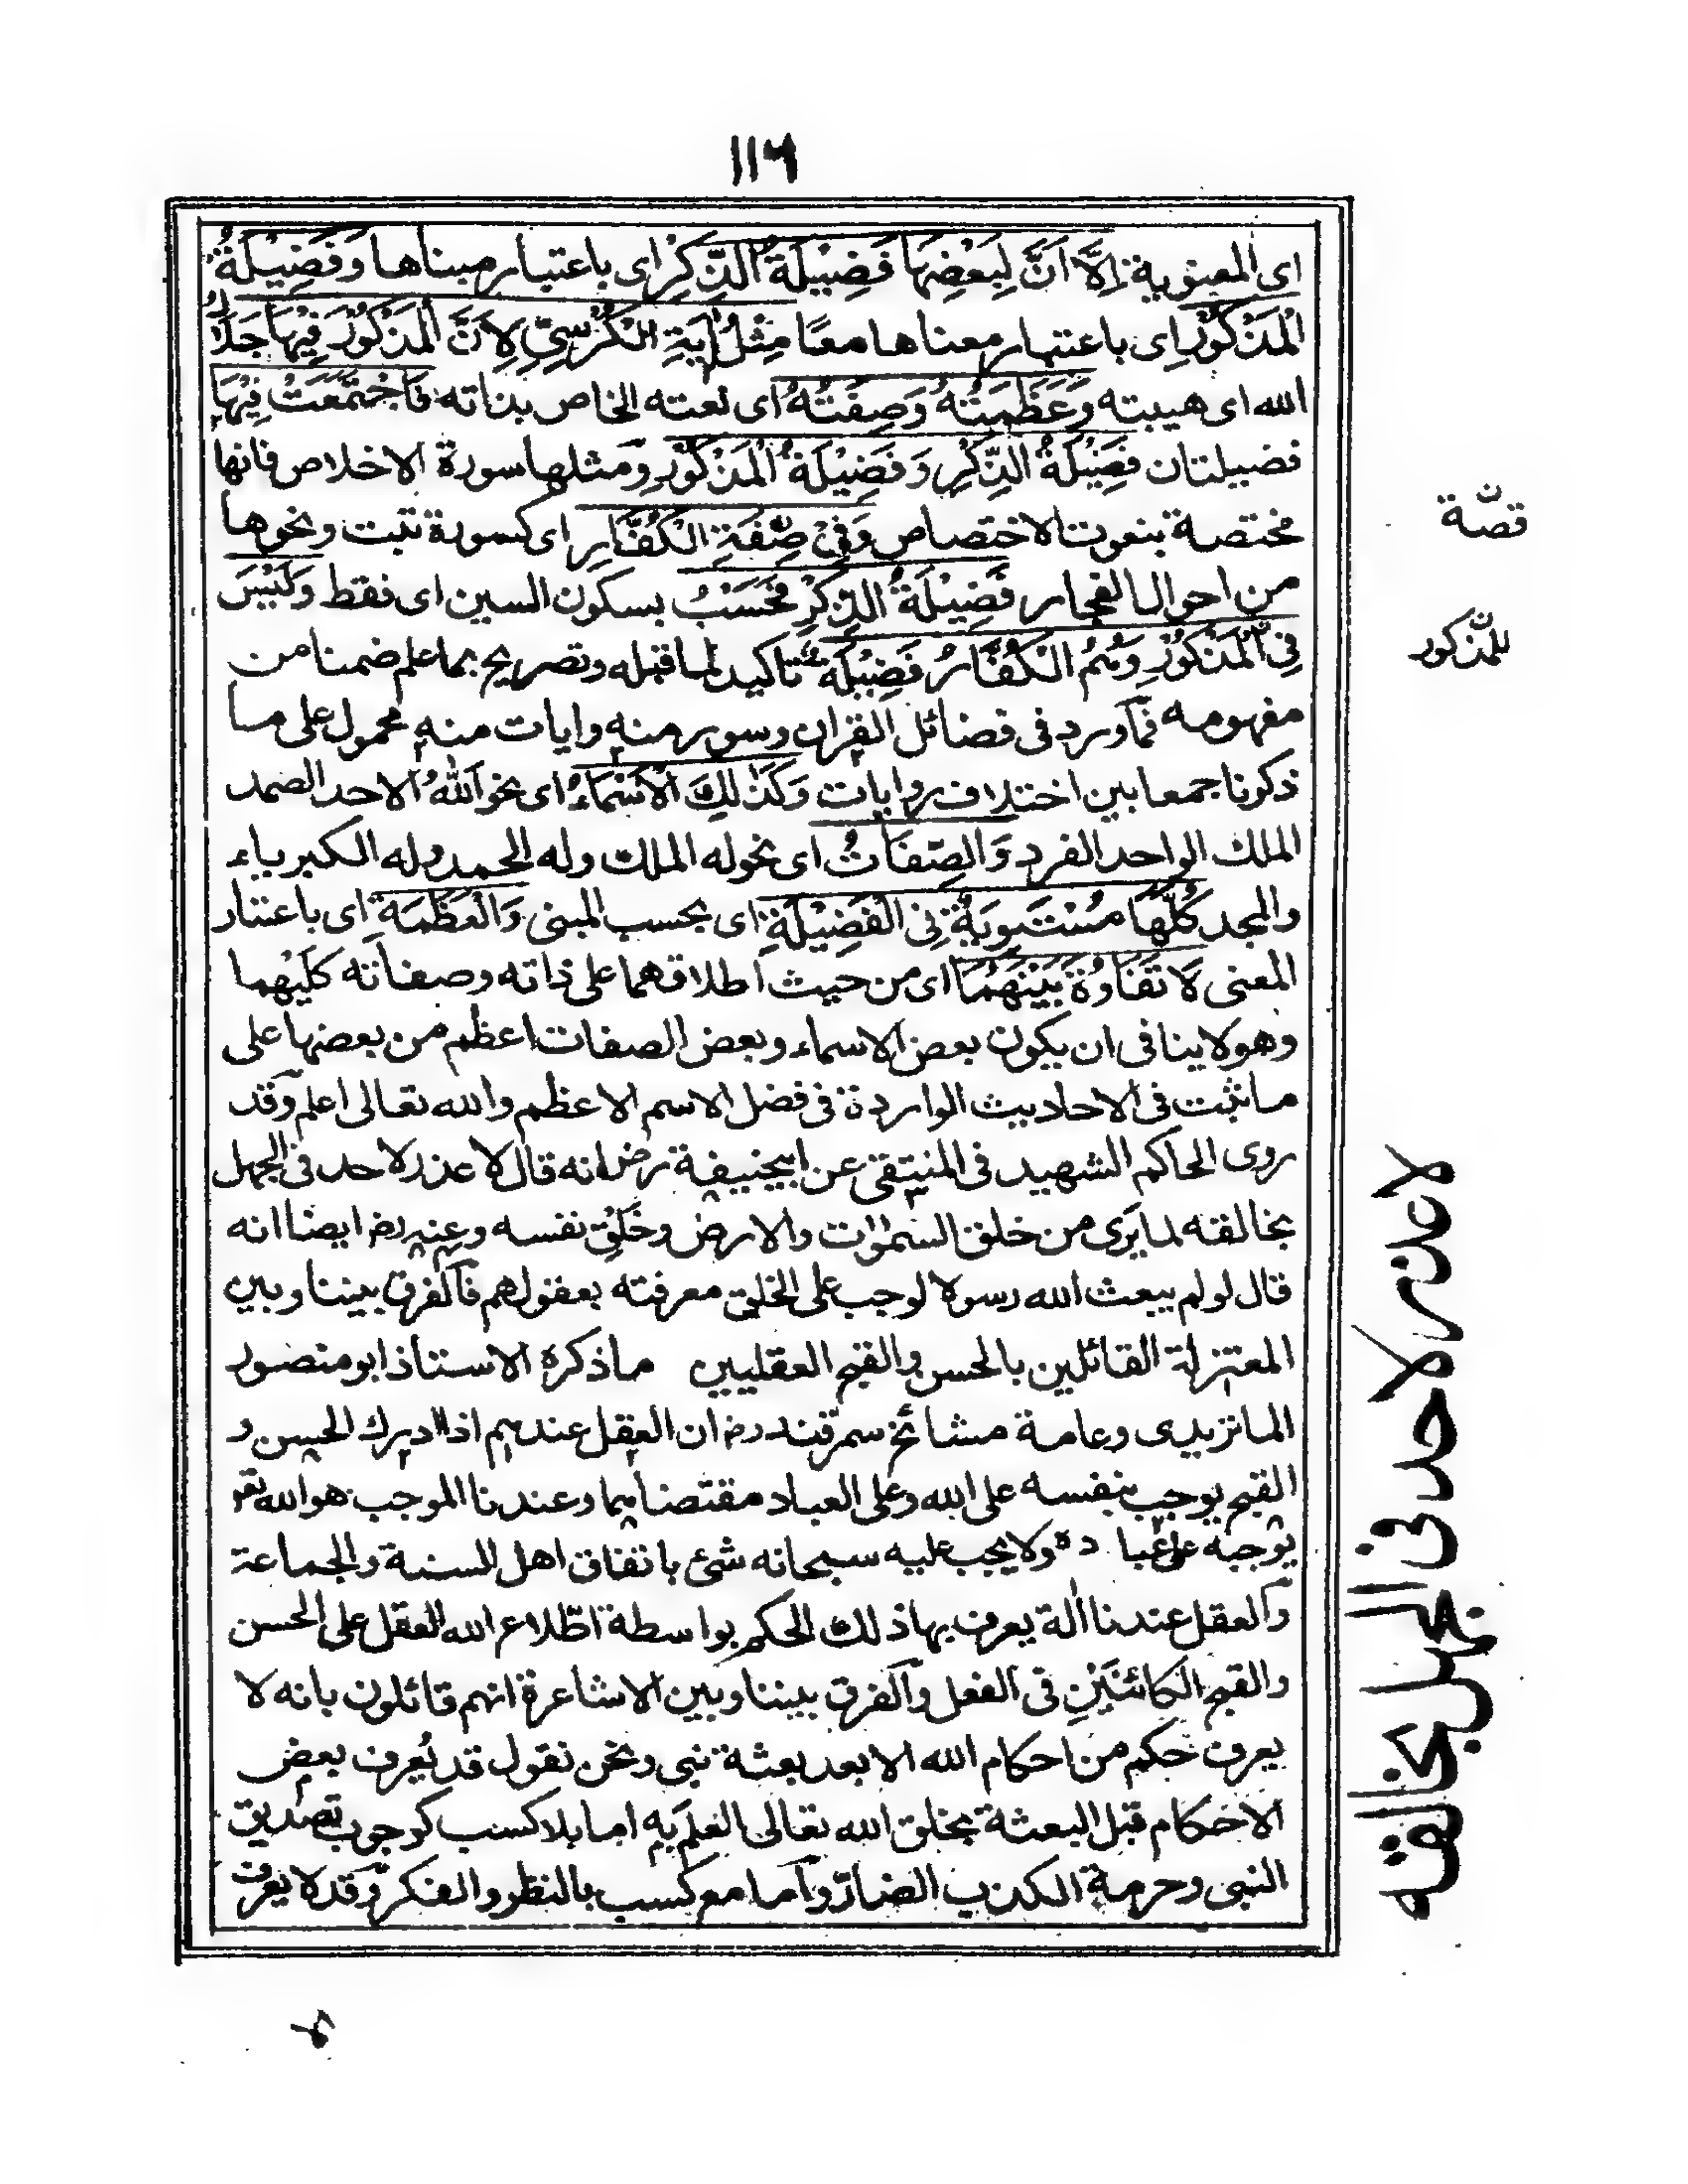 ١١٦
اى المعنوية اِلَّا اَنَّ لِبَعْضِهَا فَضِيْلَةُ الذِّكْرِ اى باعتبار مبناها وَفَضِيْلَةُ
الْمَذْكُوْرِ اى باعتبار معناها معًا مِثْلُ اٰيَةِ الْكُرْسِيِّ لِاَنَّ الْمَذْكُوْرَ فِيْهَا جَلَالُ
الله اى هيبته وَعَظَمَتُهُ وَصِفَتُهُ اى نعته الخاص بذاته فَاجْتَمَعَتْ فِيْهَا
فضيلتان فَضِيْلَةُ الذِّكْرِ وَفَضِيْلَةُ الْمَذْكُوْرِ ومثلها سورة الاخلاص فانها
مختصة بنعوت الاختصاص وَفِيْ صِفَةِ الْكُفَّارِ اى كسورة تبت ونحوها
من احوال الفجار فَضِيْلَةُ الذِّكْرِ فَحَسْبُ بسكون السين اى فقط وَلَيْسَ
فِي الْمَذْكُوْرِ وَهُمُ الْكُفَّارُ فَضِيْلَةٌ تاكيد لما قبله وتصريح بما علم ضمنا من
مفهومه فما ورد فى فضائل القران وسور منه وايات منه محمول على ما
ذكرنا جمعا بين اختلاف روايات وَكَذٰلِكَ الْاَسْمَاءُ اى نحو اللهُ الاحد الصمد
الملك الواحد الفرد وَالصِّفَاتُ اى نحو له الملك وله الحمد وله الكبرياء
والمجد كُلُّهَا مُسْتَوِيَةٌ فِي الْفَضِيْلَةِ اى بحسب المبنى وَالْعَظَمَةِ اى باعتبار
المعنى لَا تَفَاوُةَ بَيْنَهُمَا اى من حيث اطلاقهما على ذاته وصفاته كليهما
وهو لا ينافى ان يكون بعض الاسماء وبعض الصفات اعظم من بعضها على
ما ثبت فى الاحاديث الواردة فى فضل الاسم الاعظم والله تعالى اعلم وقد
روى الحاكم الشهيد فى المنتقى عن ابيحنيفة رض انه قال لا عذر لاحد فى الجهل
بخالقه لما يَرى من خلق السمٰوٰت والارض وخَلْقِ نفسه وعنه رض ايضا انه
قال لو لم يبعث الله رسولا لوجب على الخلق معرفته بعقولهم فالفرق بيننا وبين
المعتزلة القائلين بالحسن والقبح العقليين ما ذكره الاستاذ ابو منصور
الماتريدى وعامة مشائخ سمرقند رض ان العقل عندهم اذا ادرك الحسن و
القبح يوجب بنفسه على الله وعلى العباد مقتضاهما وعندنا الموجب هو الله تعـ
يوجبه على عباده ولا يجب عليه سبحانه شئ باتفاق اهل السنة والجماعة
والعقل عندنا اٰلة يعرف بها ذلك الحكم بواسطة اطّلاع الله العقل على الحسن
والقبح الكائنَيْنِ فى الفعل والفرق بيننا وبين الاشاعرة انهم قائلون بانه لا
يعرف حكم من احكام الله الا بعد بعثة نبى ونحن نقول قد يُعرف بعض
الاحكام قبل البعثة بخلق الله تعالى العلم به اما بلا كسب كوجوب تصديق
النبى وحرمة الكذب الضارّ واما مع كسب بالنظر والفكر وقد لا يعرف
قصّة
للمذكور
لا عذر لاحد فى الجهل بخالقه